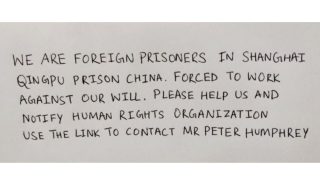 WE ARE FOREIGN PRISONERS IN SHANGHAI
QINGPU PRISON CHINA. FORCED TO WORK
AGAINST OUR WILL. PLEASE HELP US AND
NOTIFY HUMAN RIGHTS ORGANIZATION
USE THE LINK TO CONTACT MR PETER HUMPHREY